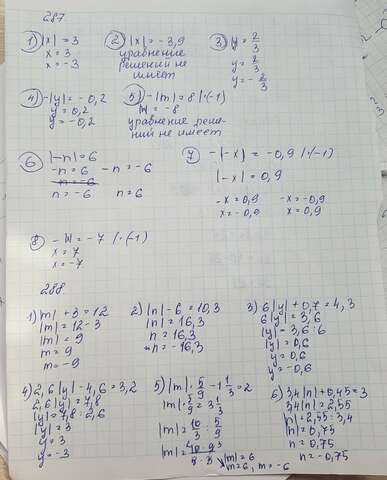 287
1) |x| = 3
x = 3
x = -3
2) |x| = -3,9
уравнение
решений не
имеет
3) y = 2/3
y = 2/3
y = -2/3
4) -|y| = -0,2
y = 0,2
y = -0,2
5) -|m| = 8 |·(-1)
|m| = -8
уравнение реше-
ний не имеет
6 |-n| = 6
-n = 6 -n = -6
n = -6
n = -6 n = 6
7 -|-x| = -0,9 |·(-1)
|-x| = 0,9
-x = 0,9 -x = -0,9
x = -0,9 x = 0,9
8 -|x| = -7 |·(-1)
x = 7
x = -7
288.
1) |m| + 3 = 12
|m| = 12-3
|m| = 9
m = 9
m = -9
2) |n| - 6 = 10,3
|n| = 16,3
n = 16,3
n = -16,3
3) 6|y| + 0,7 = 4,3
6|y| = 3,6
|y| = 3,6 : 6
|y| = 0,6
y = 0,6
y = -0,6
4) 2,6|y| - 4,6 = 3,2
2,6|y| = 7,8
|y| = 7,8 : 2,6
|y| = 3
y = 3
y = -3
5) |m| · 5/9 - 1 1/3 = 2
|m| · 5/9 = 3 1/3
|m| = 10/3 : 5/9
|m| = 10·9/5·3
|m| = 6
m = 6, m = -6
6) 3,4|n| + 0,45 = 3
3,4|n| = 2,55
|n| = 2,55 : 3,4
|n| = 0,75
n = 0,75
n = -0,75